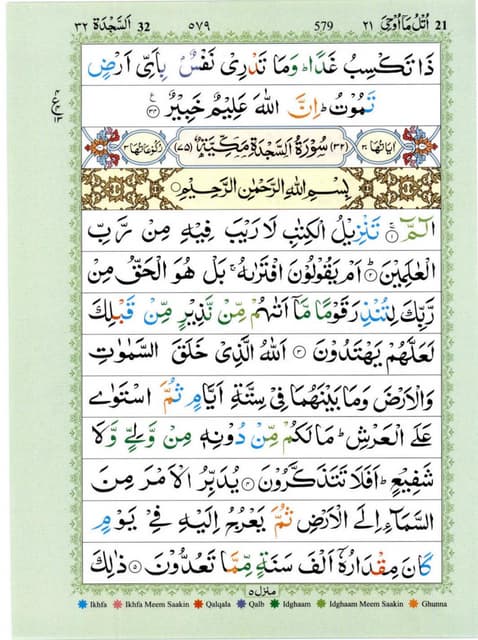 ٣٢ اَلسَّجْدَة 32 ٥٧٩ 579 ٢١ اُتْلُ مَا اُوْحِیَ 21
ذَا تَكْسِبُ غَدًا ؕ وَمَا تَدْرِىْ نَفْسٌۢ بِاَىِّ اَرْضٍ
تَمُوْتُ ؕ اِنَّ اللّٰهَ عَلِيْمٌ خَبِيْرٌ ﴿۳۴﴾
اٰيَاتُهَا ٣٠ (٣٢) سُوْرَةُ السَّجْدَةِ مَكِّيَّةٌ (٧٥) رُكُوْعَاتُهَا ٣
بِسْمِ اللّٰهِ الرَّحْمٰنِ الرَّحِيْمِ
الٓمّٓ ۚ﴿۱﴾ تَنْزِيْلُ الْكِتٰبِ لَا رَيْبَ فِيْهِ مِنْ رَّبِّ
الْعٰلَمِيْنَ ؕ﴿۲﴾ اَمْ يَقُوْلُوْنَ افْتَرٰىهُ ۚ بَلْ هُوَ الْحَقُّ مِنْ
رَّبِّكَ لِتُنْذِرَ قَوْمًا مَّاۤ اَتٰىهُمْ مِّنْ نَّذِيْرٍ مِّنْ قَبْلِكَ
لَعَلَّهُمْ يَهْتَدُوْنَ ﴿۳﴾ اَللّٰهُ الَّذِىْ خَلَقَ السَّمٰوٰتِ
وَالْاَرْضَ وَمَا بَيْنَهُمَا فِىْ سِتَّةِ اَيَّامٍ ثُمَّ اسْتَوٰى
عَلَى الْعَرْشِ ؕ مَا لَكُمْ مِّنْ دُوْنِهٖ مِنْ وَّلِىٍّ وَّلَا
شَفِيْعٍ ؕ اَفَلَا تَتَذَكَّرُوْنَ ﴿۴﴾ يُدَبِّرُ الْاَمْرَ مِنَ
السَّمَآءِ اِلَى الْاَرْضِ ثُمَّ يَعْرُجُ اِلَيْهِ فِىْ يَوْمٍ
كَانَ مِقْدَارُهٗۤ اَلْفَ سَنَةٍ مِّمَّا تَعُدُّوْنَ ﴿۵﴾ ذٰلِكَ
منزل ٥
Ikhfa Ikhfa Meem Saakin Qalqala Qalb Idghaam Idghaam Meem Saakin Ghunna